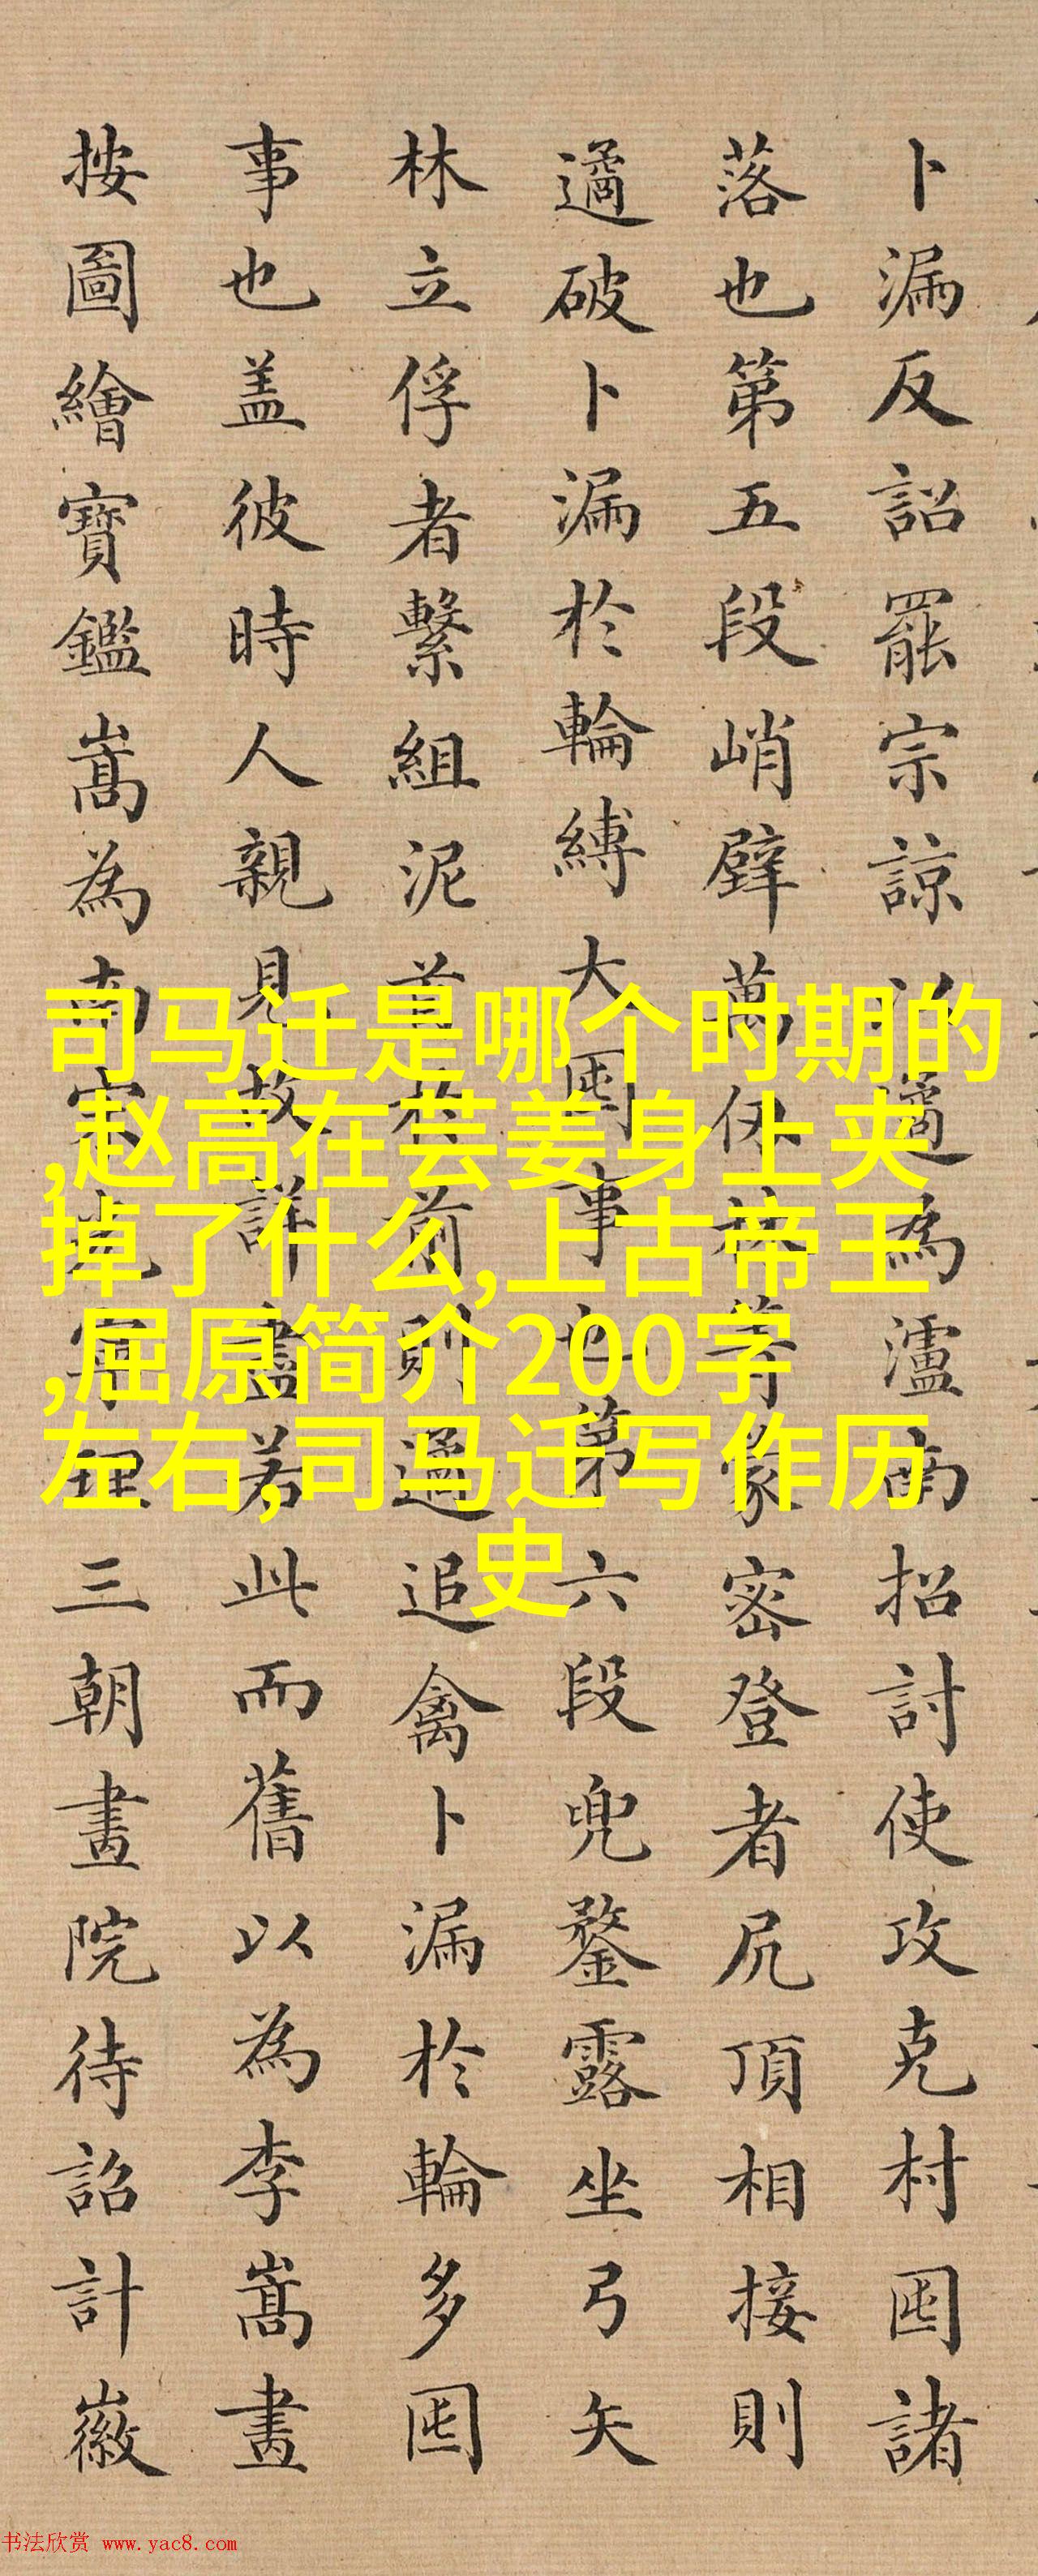 卜漏反詔罷宗諒以遹為瀘南招討使攻克村囤諸
落也第五段峭壁萬仞林箐蒙密登者尻頂相接則
遹破卜漏於輪縛大囤事也第六段兜鍪露坐弓矢
林立俘者繫組泥首於前則遹追禽卜漏於輪多囤
事也盖彼時人親見故詳盡若此而舊以為李嵩畫
按圖繪寶鑑嵩為南宋光寧理三朝畫院待詔計徽
司马迁是哪个时期的
,赵高在芸姜身上夹
掉了什么,上古帝王
,屈原简介200字
左右,司马迁写作历
史
书法欣赏 www.yac8.com